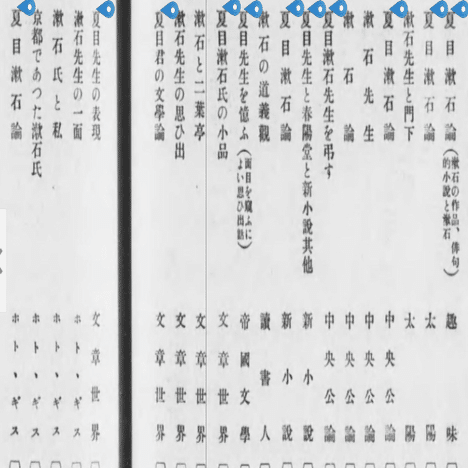 夏目漱石論(漱石の作品、俳句的小説と漱石) 趣味
夏目漱石論 太陽
漱石先生と門下 太陽
夏目漱石論 中央公論
漱石先生 中央公論
漱石論 中央公論
夏目漱石先生を弔す 中央公論
夏目先生と春陽堂と新小説其他 新小説
夏目漱石論 新小説
漱石の道義觀 讀書人
夏目先生を憶ふ(面目を窺ふによい思ひ出話) 帝國文學
夏目漱石氏の小品 文章世界
漱石と二葉亭 文章世界
漱石先生の思ひ出 文章世界
夏目君の文學論 文章世界
夏目先生の表現 文章世界
漱石先生の一面 ホトヽギス
漱石氏と私 ホトヽギス
京都であつた漱石氏 ホトヽギス
夏目漱石論 ホトヽギス